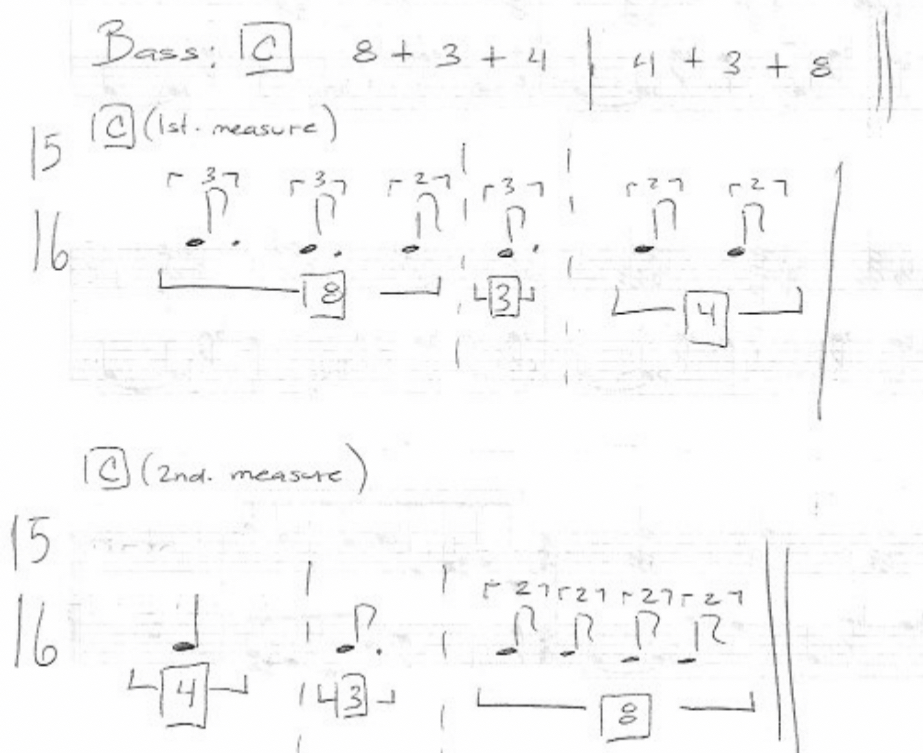 Bass: C 8 + 3 + 4 | 4 + 3 + 8
C (1st. measure)
15
16
3 3 2 3 2 2
8 3 4
C (2nd. measure)
15
16
2 2 2 2
4 3 8